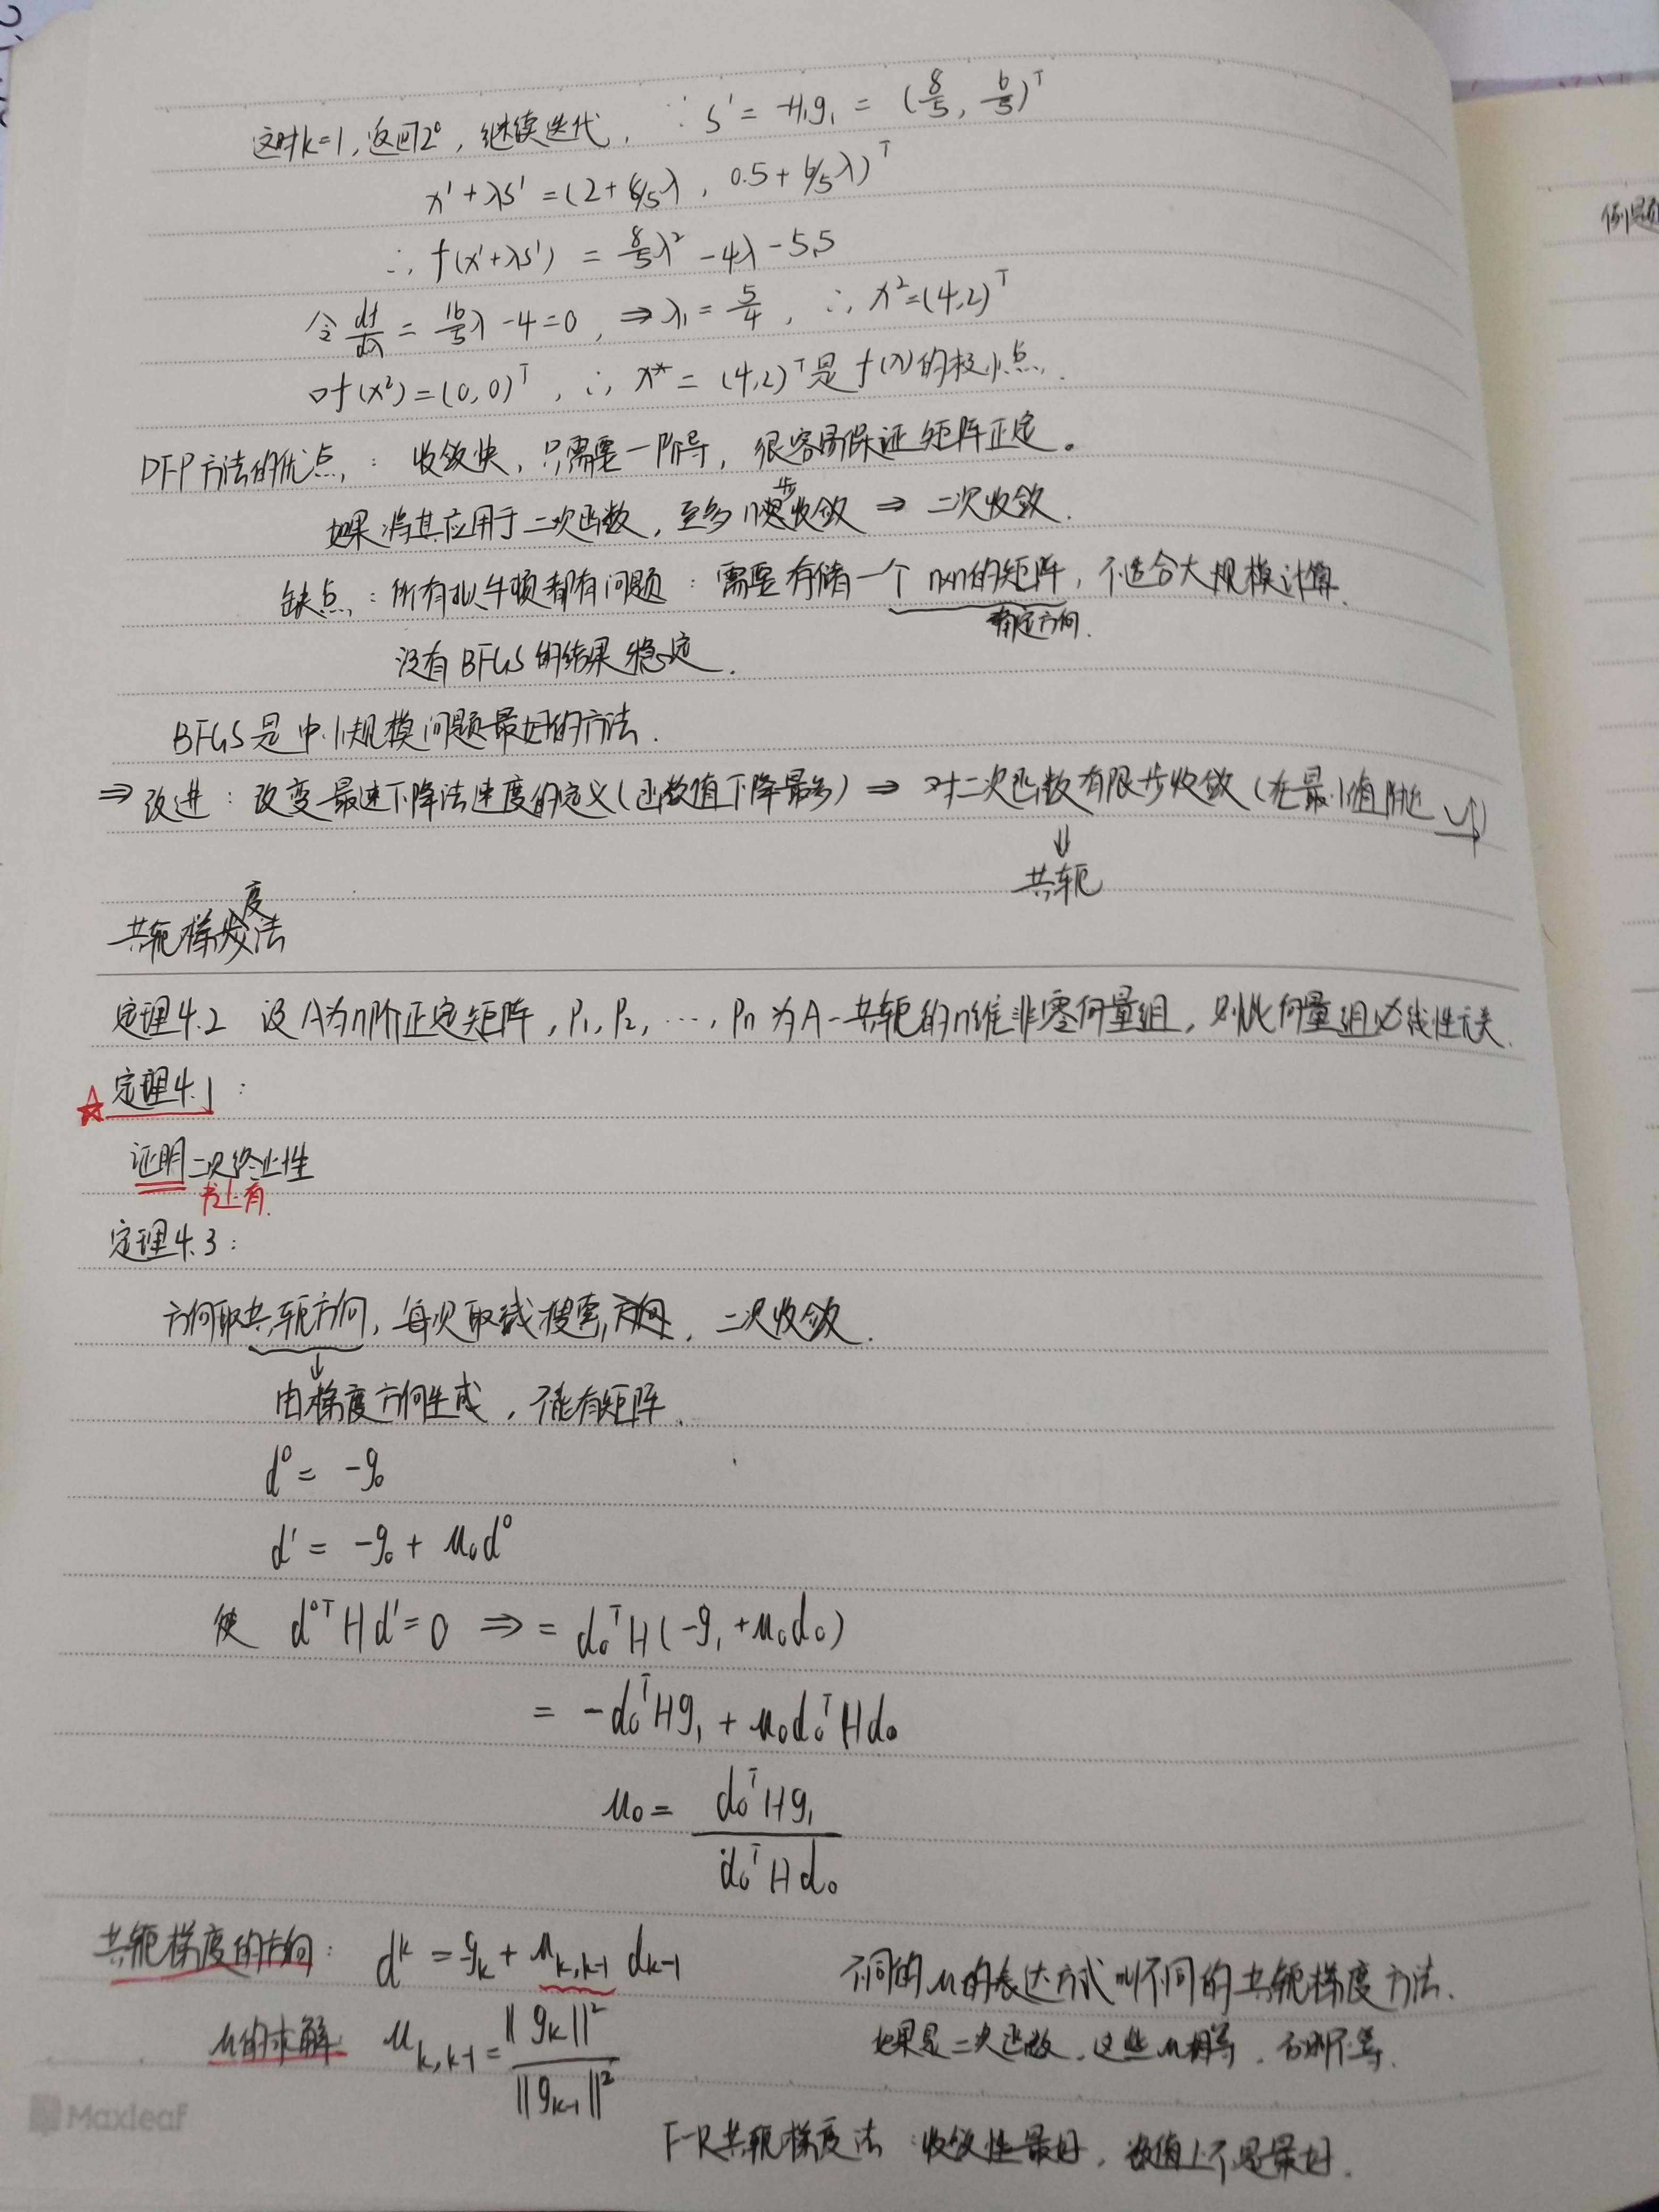 这时k=1,返回2°,继续迭代, ∵ S¹ = -H₁g₁ = (8/5, 6/5)ᵀ
例题
x¹+λS¹ = (2+8/5λ, 0.5+6/5λ)ᵀ
∴ f(x¹+λS¹) = 8/5λ² -4λ -5.5
令 df/dλ = 16/5λ -4=0, ⇒ λ₁ = 5/4, ∴ x²=(4,2)ᵀ
∇f(x²)=(0,0)ᵀ, ∴ x* = (4,2)ᵀ是f(x)的极小点.
DFP方法的优点: 收敛快,只需要一阶导,很容易保证矩阵正定。
如果将其应用于二次函数,至多n步收敛 ⇒ 二次收敛.
缺点:所有拟牛顿都有问题:需要存储一个n×n的矩阵,不适合大规模计算.
确定方向.
没有BFGS的结果稳定.
BFGS是中小规模问题最好的方法.
⇒ 改进:改变最速下降法速度的定义(函数值下降最多) ⇒ 对二次函数有限步收敛(在最小值附近
⇓
共轭
共轭梯度法
定理4.2 设A为n阶正定矩阵,P₁,P₂,…,Pn为A-共轭的n维非零向量组,则此向量组必线性无关.
☆定理4.1:
证明二次终止性
书上有.
定理4.3:
方向取共轭方向,每次取线搜索,二次收敛.
↓
由梯度方向生成,不能有矩阵.
d⁰ = -g₀
d¹ = -g₀ + μ₀d⁰
使 d⁰ᵀHd¹=0 ⇒ = d₀ᵀH(-g₁+μ₀d₀)
= -d₀ᵀHg₁ + μ₀d₀ᵀHd₀
μ₀ = d₀ᵀHg₁ / d₀ᵀHd₀
共轭梯度的方向: dᵏ = gₖ + μₖ,ₖ₋₁ dₖ₋₁ 不同的μ的表达方式叫不同的共轭梯度方法.
μ的求解: μₖ,ₖ₋₁ = ||gₖ||² / ||gₖ₋₁||² 如果是二次函数,这些μ相等,否则不等.
F-R共轭梯度法:收敛性最好,数值上不是最好.
Maxleaf